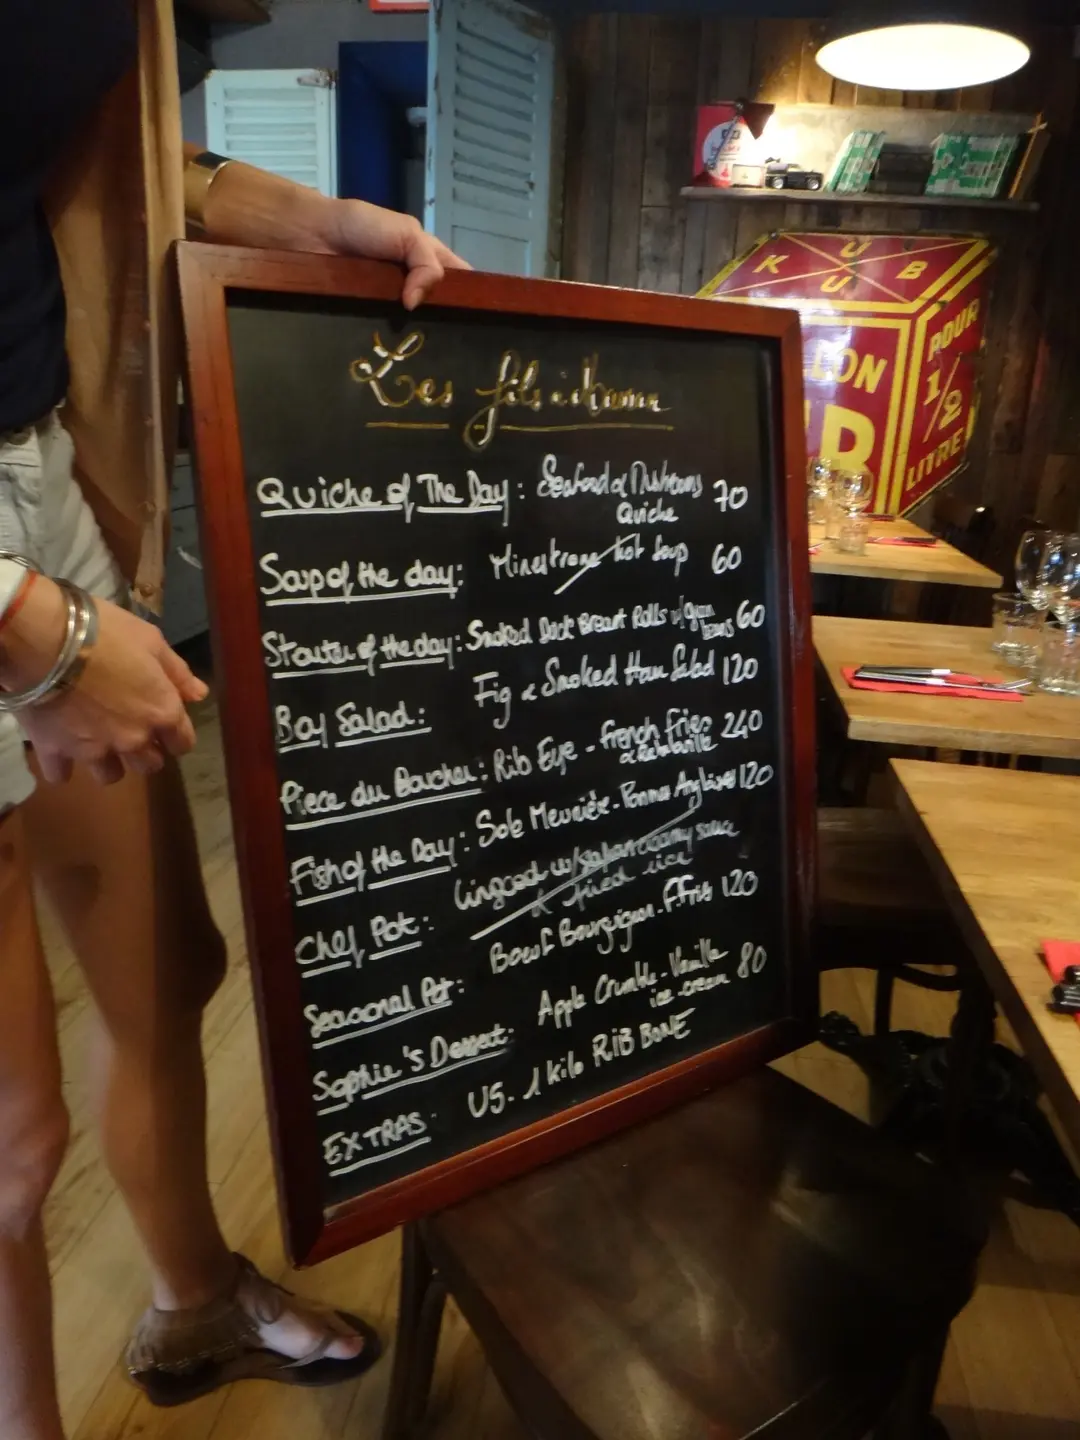 Les fils à Maman
Quiche of The Day: Seafood & Mushrooms 70
Quiche
Soup of the day: Minestrone hot Soup 60
Starter of the day: Smoked Duck Breast Rolls w/ green 60
beans
Bay Salad: Fig & Smoked Ham Salad 120
Piece du Boucher: Rib Eye - french fries 240
& Ratatouille
Fish of the Day: Sole Meunière - Pommes Anglaises 120
Chef Pot: Lingcod w/ safran creamy sauce
& fried rice
Seasonal Pot: Boeuf Bourguignon - F. Fries 120
Sophie's Dessert: Apple Crumble - Vanilla 80
ice-cream
EXTRAS: US. 1 Kilo RIB BONE
KUB
U
LLON
POUR
1/2
LITRE